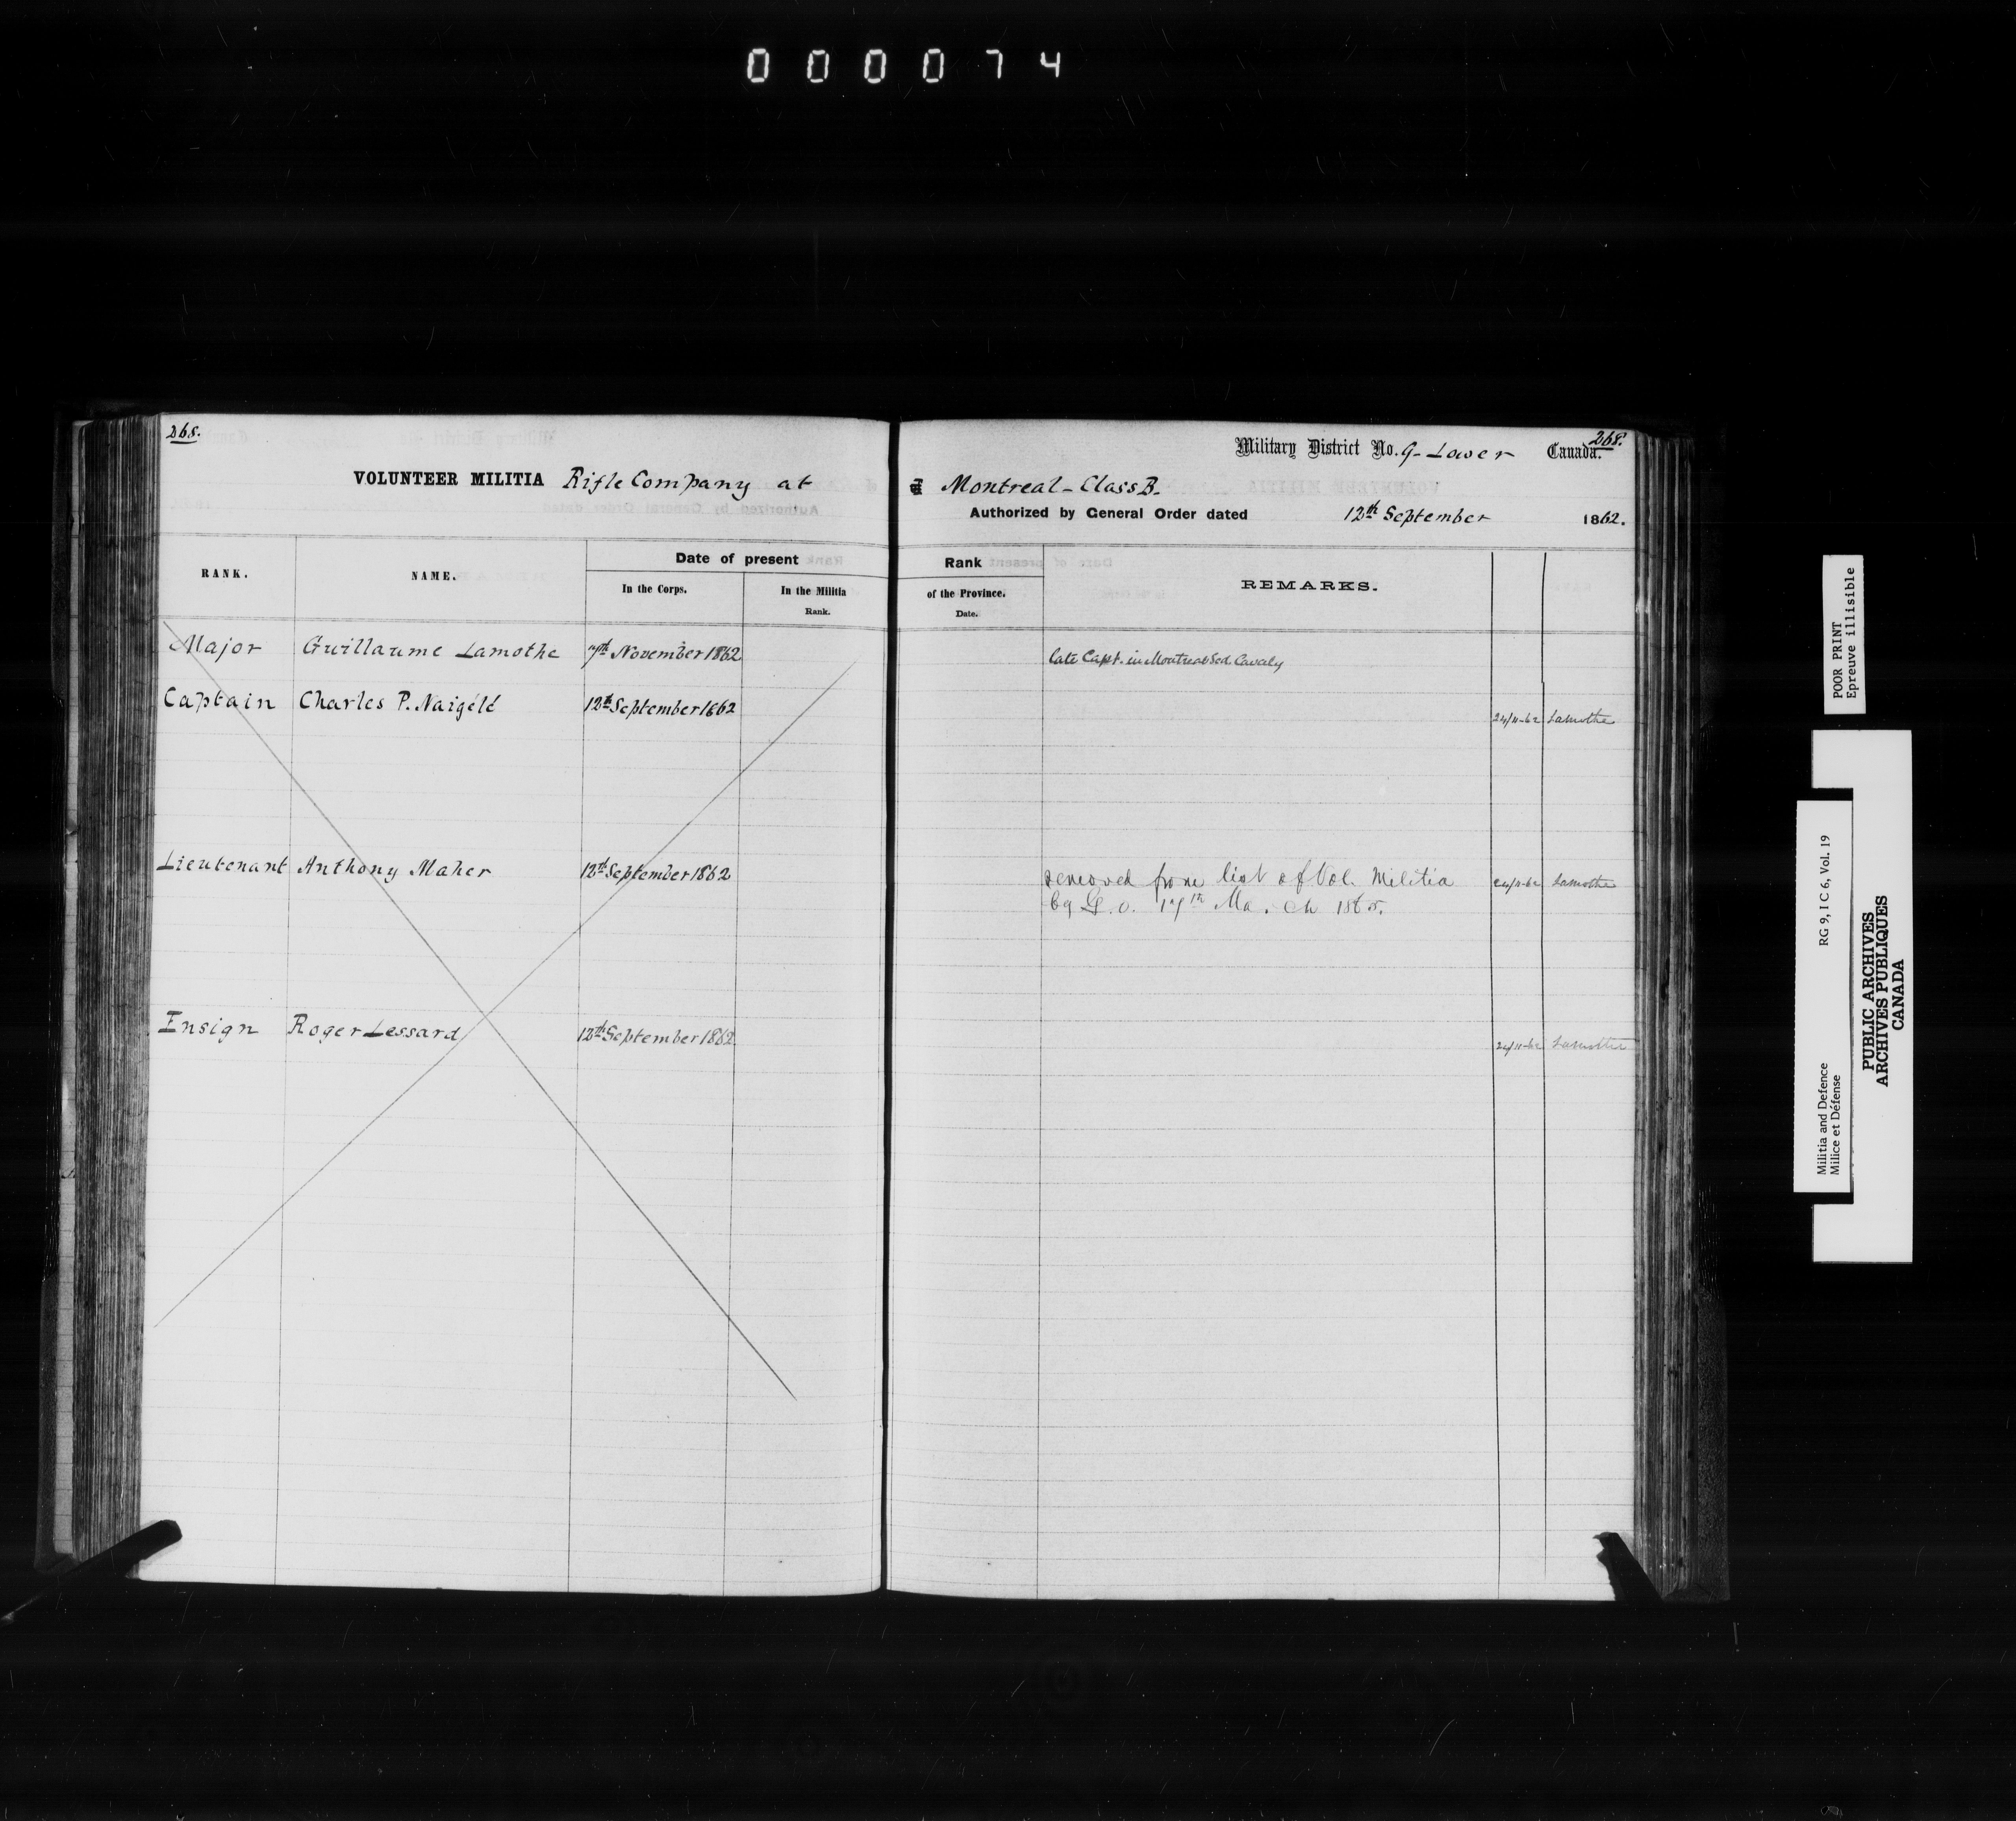 000074
268.
VOLUNTEER MILITIA Rifle Company at
RANK.
NAME.
Date of present
In the Corps.
In the Militia
Rank.
Major Guillaume Lamothe 7th November 1862
Captain Charles P. Naigélé 12th September 1862
Lieutenant Anthony Maher 12th September 1862
Ensign Roger Lessard 12th September 1862
268.
Military District No. 9 - Lower Canada.
Montreal - Class B.
Authorized by General Order dated 12th September 1862.
Rank
of the Province.
Date.
REMARKS.
late Capt. in Montreal Sed. Cavaly
24/11-62 Lamothe
removed from list of Vol. Militia 24/11-62 Lamothe
by G.O. 17th March 1865.
24/11-62 Lamothe
POOR PRINT
Epreuve illisible
RG 9, I C 6, Vol. 19
Militia and Defence
Milice et Défense
PUBLIC ARCHIVES
ARCHIVES PUBLIQUES
CANADA